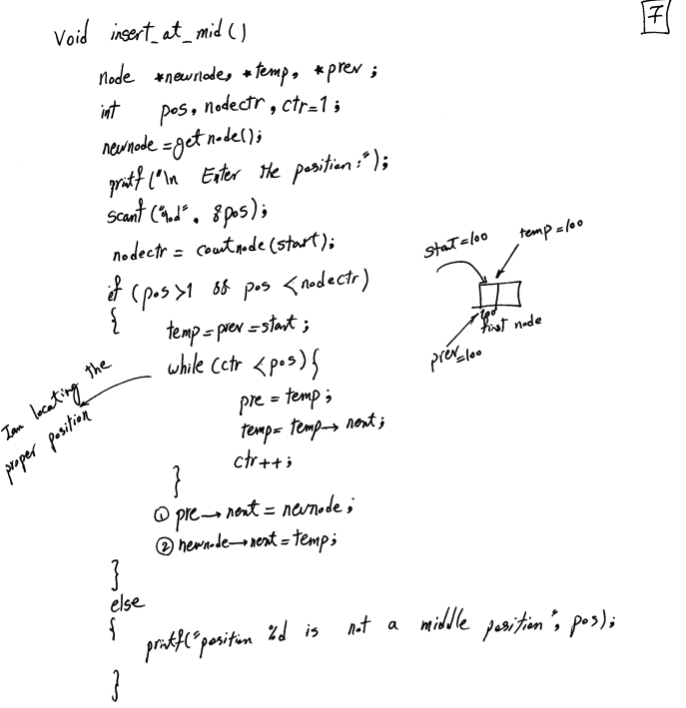 7
Void insert_at_mid()
node *newnode, *temp, *prev;
int pos, nodectr, ctr=1;
newnode=getnode();
printf("\n Enter the position:");
scanf("%d", &pos);
nodectr = countnode(start);
if (pos>1 && pos <nodectr)
{ temp=prev=start;
while (ctr <pos){
pre = temp;
temp= temp→next;
ctr++;
}
① pre→next = newnode;
② newnode→next=temp;
}
else
{
printf("position %d is not a middle position", pos);
}
Iam locating the
proper position
start=100
temp=100
100
first node
prev=100